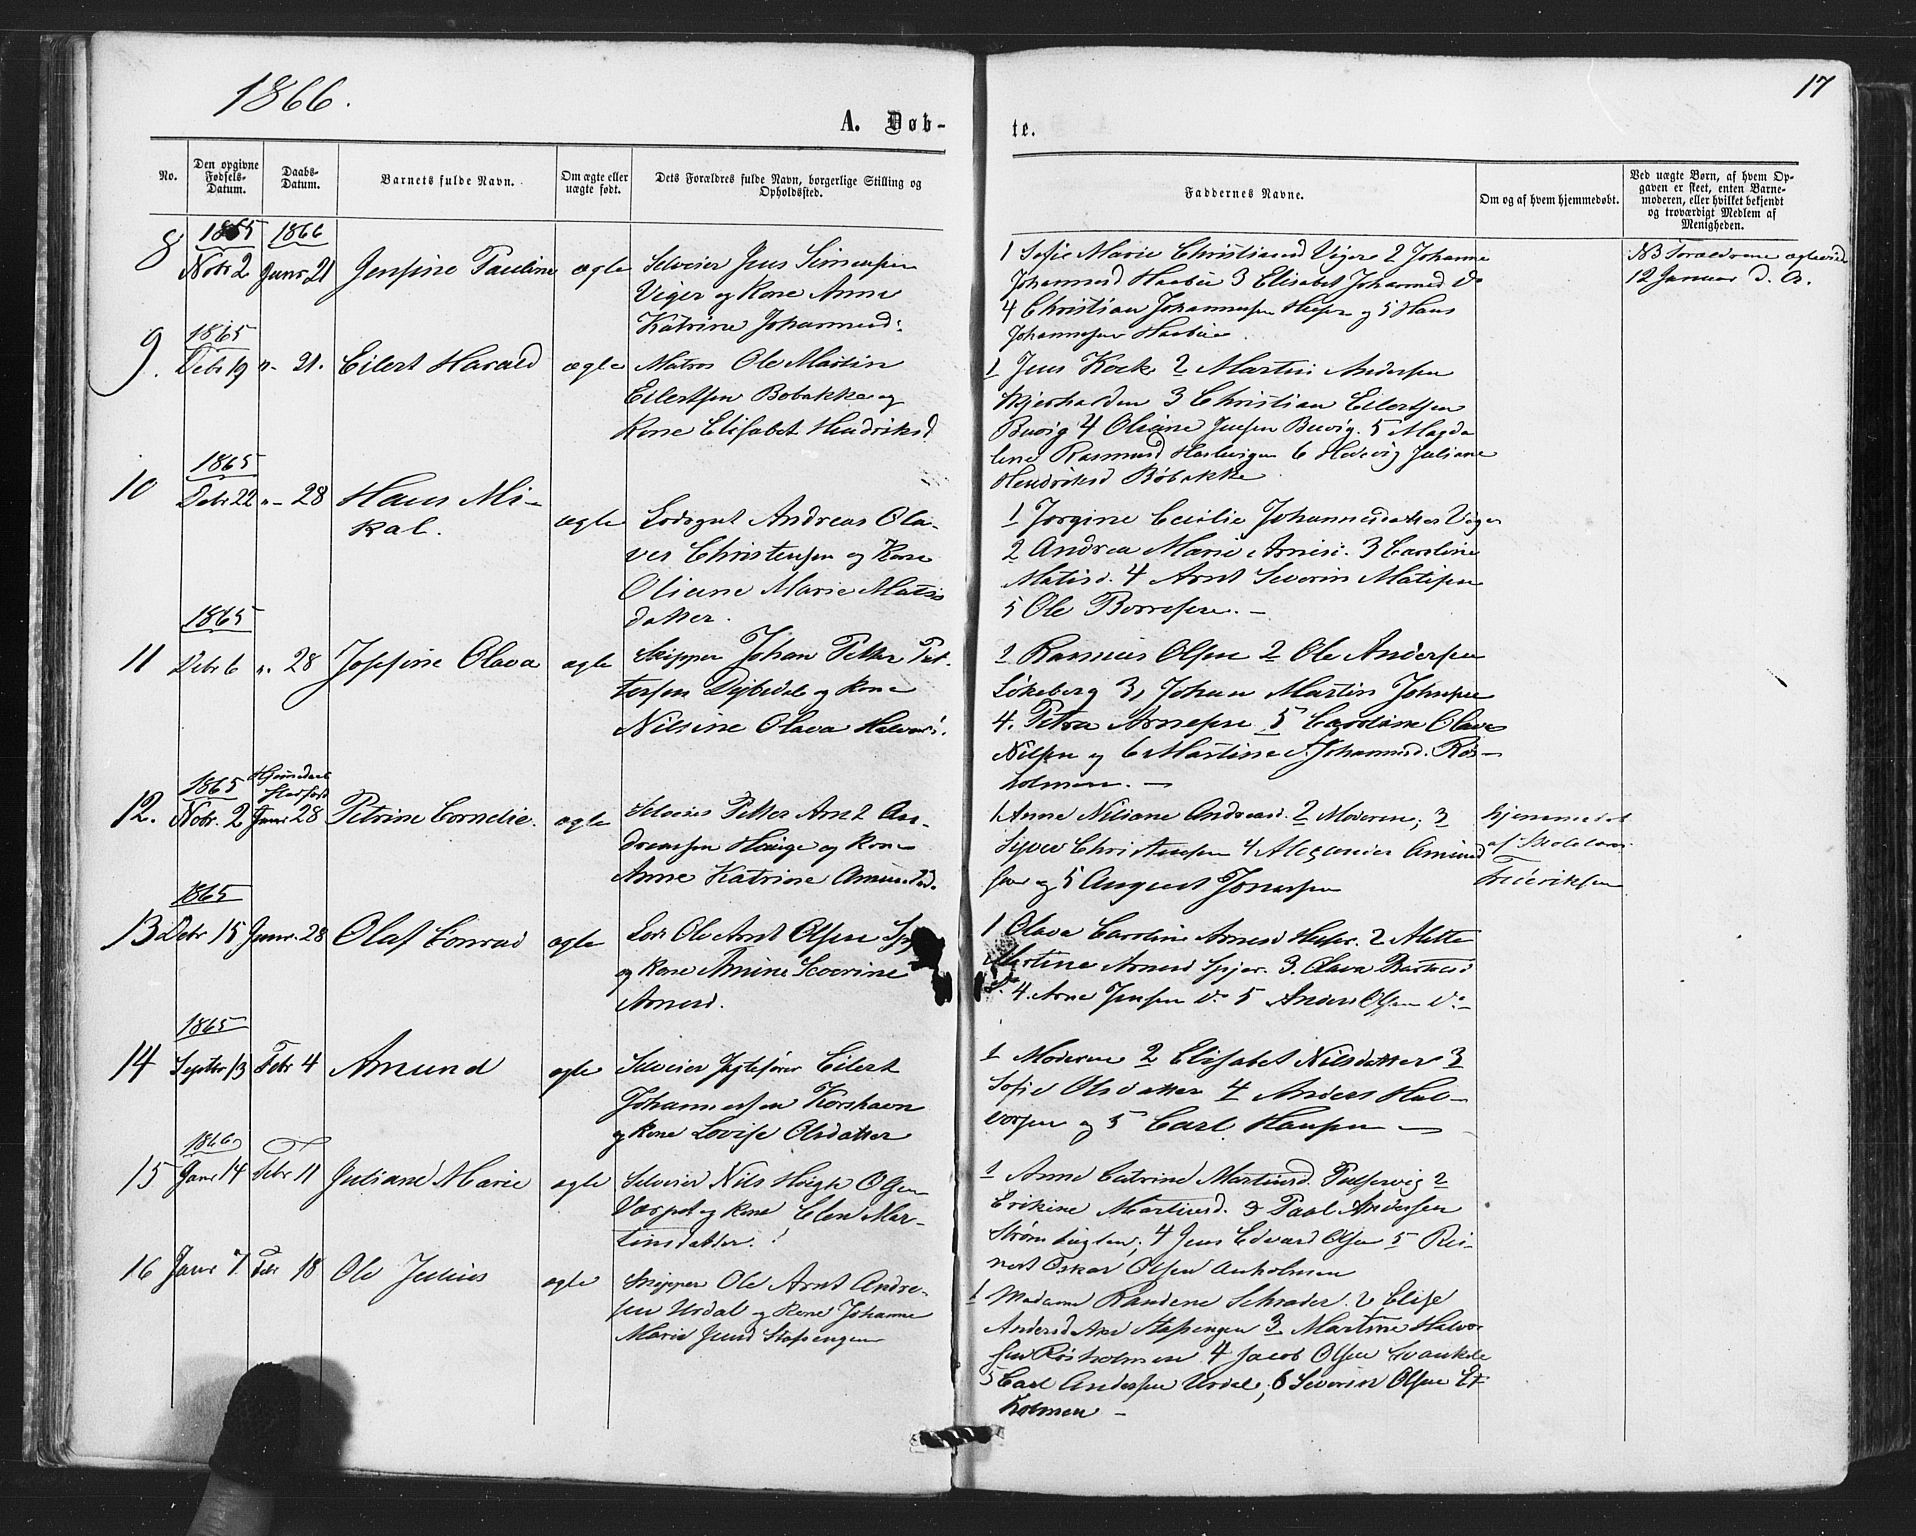 1866.
17
A. Døb-
te.
No.
Den opgivne
Fødsels-
Datum.
Daabs-
Datum.
Barnets fulde Navn.
Om ægte eller
uægte født.
Dets Forældres fulde Navn, borgerlige Stilling og
Opholdssted.
Faddernes Navne.
Om og af hvem hjemmedøbt.
Ved uægte Børn, af hvem Op-
gaven er skeet, enten Barne-
moderen, eller hvilket bekjendt
og troværdigt Medlem af
Menigheden.
1865 1866
8 Nobr 2 Janr 21 Jensine Pauline ægte
Selveier Jens Simensen
Viger og Kone Anne
Katrine Johannesd:
1 Sofie Marie Christiansd Viger 2 Johanne
Johannesd 3 Elisabet Johannesd Do
4 Christian Johannesen og 5 Hans
Johannesen
NB Forældrene
12 Januar d. A.
1865
9. Debr 19 " 21. Eilert Harald ægte
Matros Ole Martin
Eilertsen Bobakke og
Kone Elisabet Hendriksd
1 Jens Kock 2 Martin Andersen
3 Christian Eilertsen
Buvig 4 Oliane Jensen Buvig. 5 Magda
lene Rasmusd 6 Hedevig Juliane
Hendriksd Bøbakke
1865
10 Debr 22 " 28 Hans Mi-
kal. ægte
Lodsgut Andreas Ola-
ves Christensen og Kone
Oliane Marie Matis
datter.
1 Jorgine Cecilie Johannesdatter Viger
2 Andrea Marie 3 Caroline
Matisd. 4 Arnt Severin Matisen
5 Ole Borresen. -
1865
11 Debr 6 " 28 Josefine Olava ægte
Skipper Johan Petter Pet-
tersen Dybedal og Kone
Nilsine Olava Halvors.
1 Rasmus Olsen 2 Ole Andersen
Løkeberg 3, Johan Martin Johnsen
4. Petra Arnesen 5 Caroline Olava
Nilsen og 6 Martine Johannesd. Røs-
holmen. -
1865 Hjemmedøbt
12. Nobr. 2 Janr 28 Petrine Cornelie. ægte
Selveier Petter Arnt An-
dreassen Hauge og Kone
Anne Katrine Amundsd.
1 Anne Niliane Andreasd. 2 Moderen; 3
Syver Christensen 4 Alexander Amund
sen og 5 August Jonassen
hjemmedøbt
af Skolelærer
Frederiksen
1865
13 Debr 15 Janr. 28 Olaf Conrad ægte
Lods Ole Arnt Olsen
og Kone Amine Severine
Arnesd.
1 Olava Caroline Arnesd 2 Alette
Martine Arnesd Spjær. 3. Olava
4. Arne Jensen Do 5 Anders Olsen Do -
1865
14 Septbr 13 Febr 4 Amund ægte
Selveier Jagtfører Eilert
Johannessen Korshavn
og Kone Lovise Olsdatter
1 Moderen 2 Elisabet Nilsdatter 3
Sofie Olsdatter 4 Anders Hal-
vorsen og 5 Carl Hansen -
1866
15 Janr 14 Febr 11 Juliane Marie ægte
Selveier Nils Olsen
Kone Elen Mar-
tinsdatter.
1 Anne Catrine Martinsd. 2
Erikine Martinsd. 3 Paal Andersen
4 Jens Edvard Olsen 5 Rei-
nert Oskar Olsen
16 Janr 7. Febr 18 Ole Julius ægte
Skipper Ole Arnt Andre-
sen Urdal og Kone Johanne
Marie Stafsengen
1 Madame Randene Schrader. 2 Elise
Andersd Stafsengen 3 Martine Halvor
sen Røsholmen 4 Jacob Olsen
5 Carl Andersen Urdal, 6 Severin Olsen
Kolmen -